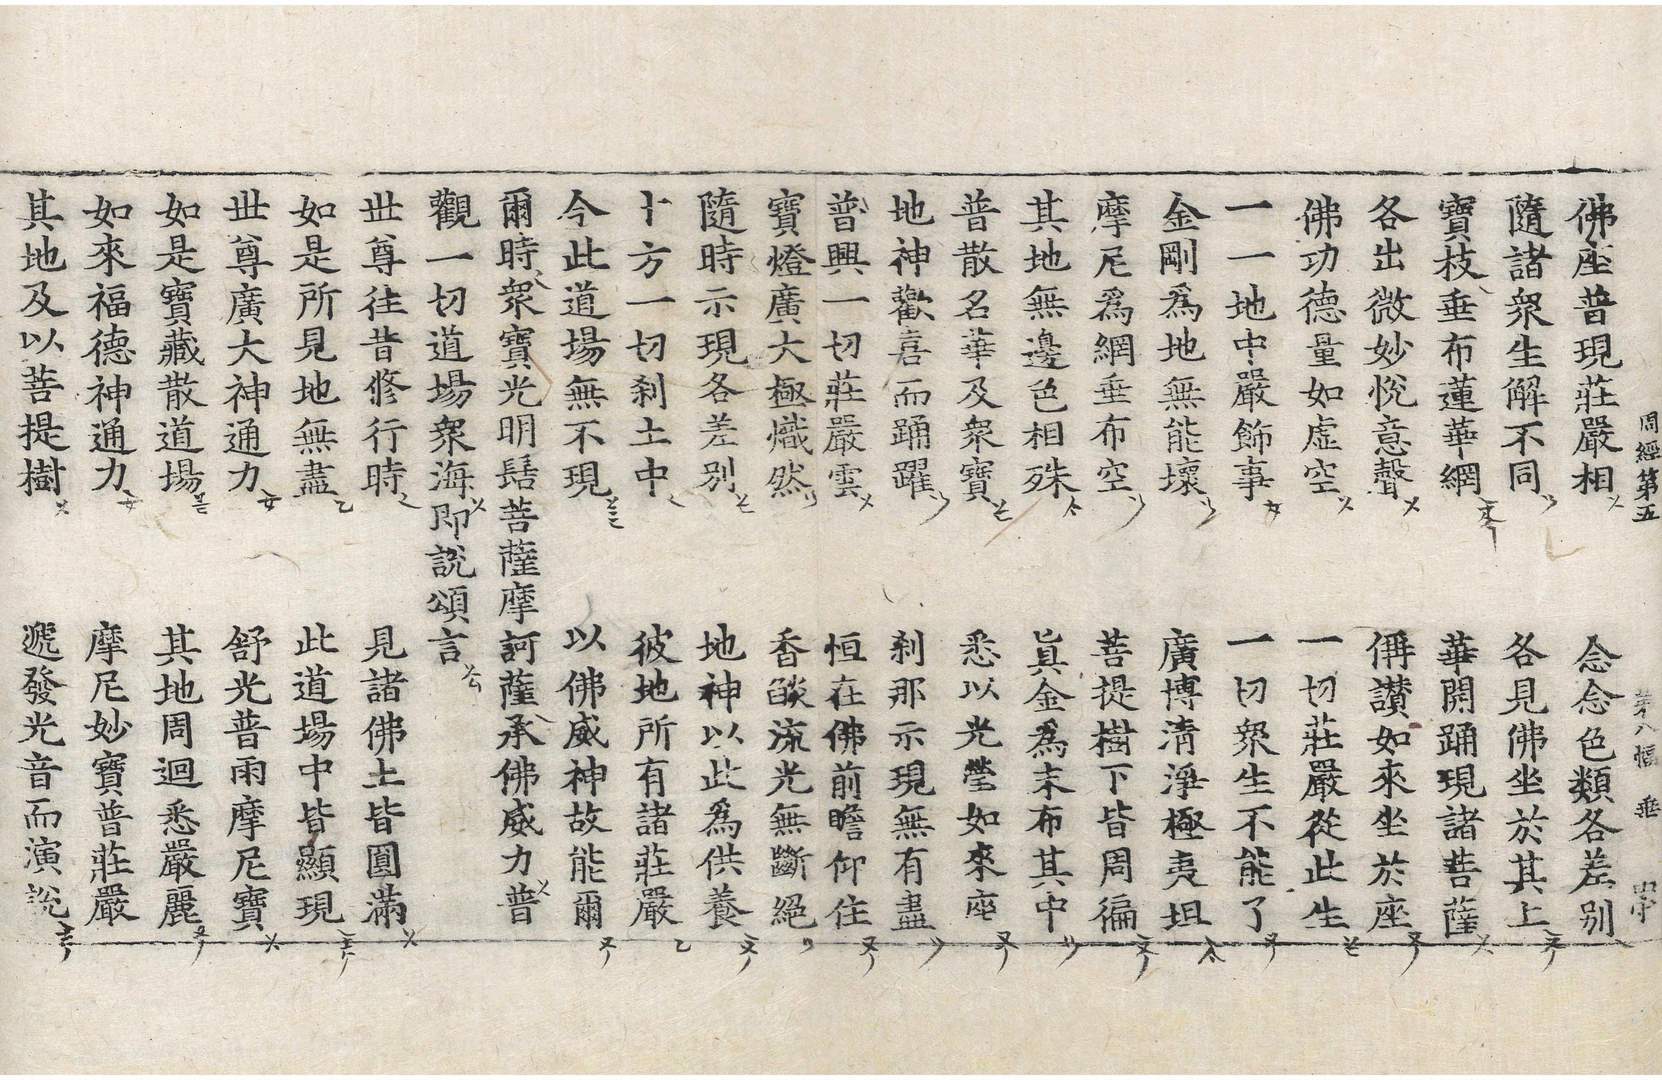 周經第五 第八幅
佛座普現莊嚴相 念念色類各差别
隨諸衆生解不同 各見佛坐於其上
寶枝垂布蓮華網 華開踊現諸菩薩
各出微妙悅意聲 偁讃如來坐於座
佛功德量如虛空 一切莊嚴從此生
一一地中嚴飾事 一切衆生不能了
金剛爲地無能壞 廣博清淨極夷坦
摩尼爲網垂布空 菩提樹下皆周徧
其地無邊色相殊 眞金為末布其中
普散名華及衆寶 悉以光瑩如來座
地神歡喜而踊躍 刹那示現無有盡
普興一切莊嚴雲 恒在佛前瞻仰住
寶燈廣大極熾然 香燄流光無斷絕
隨時示現各差别 地神以此為供養
十方一切刹土中 彼地所有諸莊嚴
今此道場無不現 以佛威神故能爾
爾時衆寶光明髻菩薩摩訶薩承佛威力普
觀一切道場衆海即說頌言
世尊往昔修行時 見諸佛土皆圓滿
如是所見地無盡 此道場中皆顯現
世尊廣大神通力 舒光普雨摩尼寶
如是寶藏散道場 其地周迴悉嚴麗
如來福德神通力 摩尼妙寶普莊嚴
其地及以菩提樹 遞發光音而演說